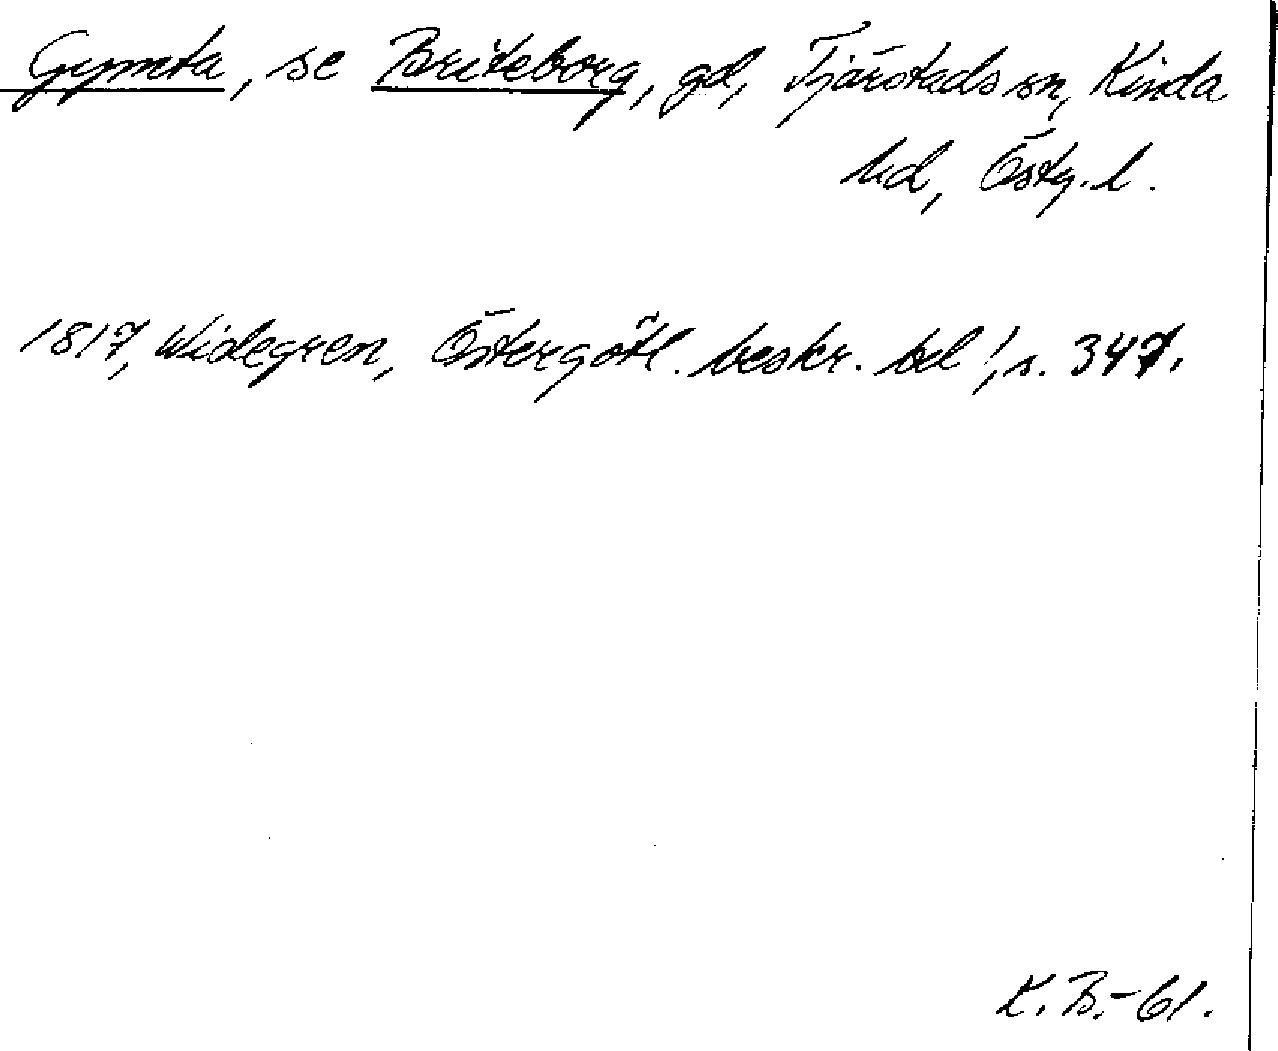 Gymta, se Briteborg, gd, Tjärstads sn, Kinda
hd, Östg. l.
1817, Widegren, Östergötl. beskr. bd 1, s. 347.
K. B. - 61.